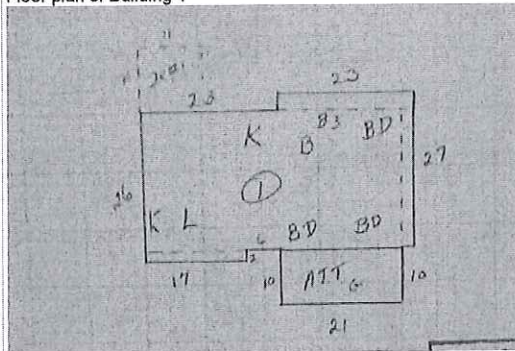 Floor plan of Building 1
23
23
K
B3
B
BD
27
1
26
K L
6
BD
BD
2
17
10
ATT G
10
21